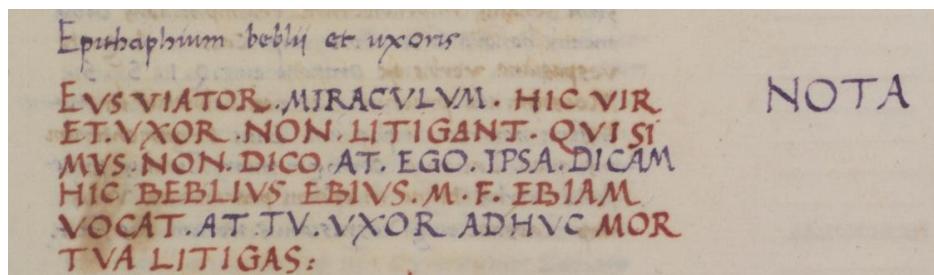 Epithaphium beblii et uxoris
EVS VIATOR. MIRACVLVM. HIC VIR
NOTA
ET. VXOR. NON. LITIGANT. QVI SI
MVS. NON. DICO. AT. EGO. IPSA. DICAM
HIC BEBLIVS EBIVS. M. F. EBIAM
VOCAT. AT. TV. VXOR ADHVC MOR
TVA LITIGAS: